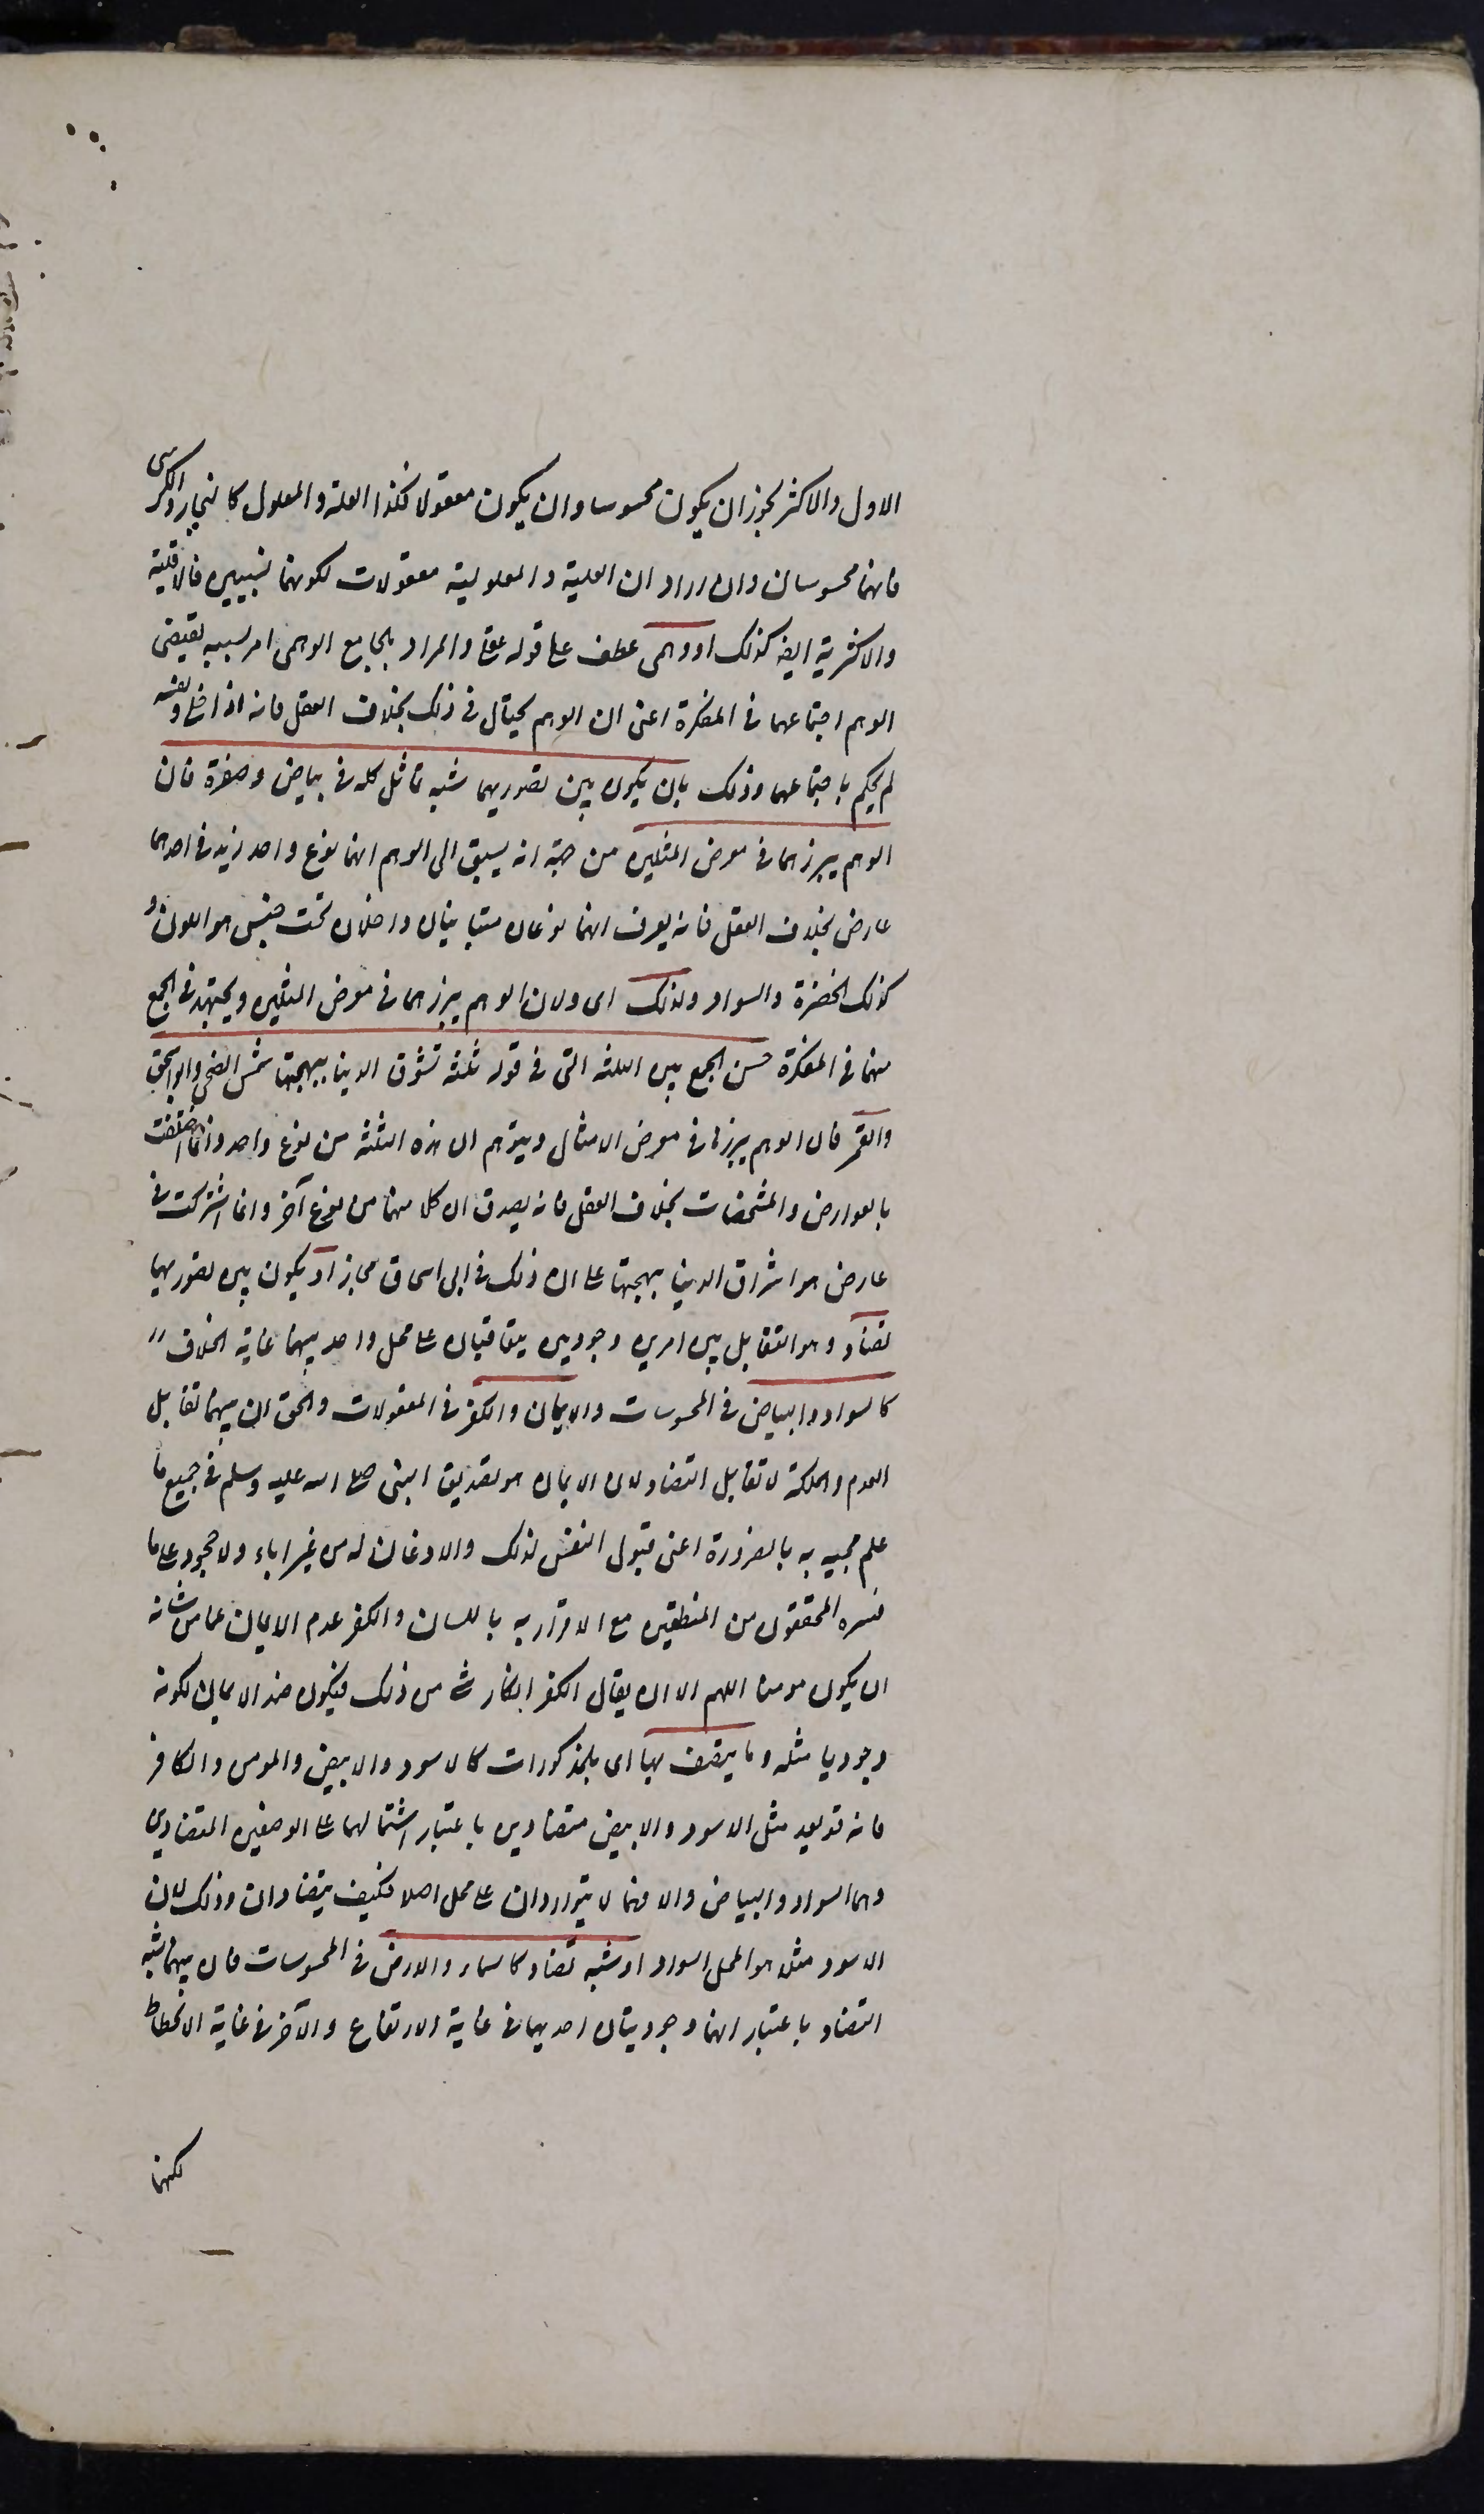 الاول والاكثر يجوز ان يكون محسوسا وان يكون معقولا فكذا العلة والمعلول كالنجار والكرسى
فانهما محسوسان وان اراد ان العلية والمعلولية معقولات لكونهما نسبيين فالاقلية
والاكثرية ايضا كذلك او وهمى عطف على قوله عقلى والمراد بالجامع الوهمى امر بسببه يقتضى
الوهم اجتماعهما فى المفكرة اعنى ان الوهم يحتال فى ذلك بخلاف العقل فانه اذا خلى ونفسه
لم يحكم باجتماعهما وذلك بان يكون بين تصوريهما شبه تماثل كلونى بياض وصفرة فان
الوهم يبرزهما فى معرض المثلين من جهة انه يسبق الى الوهم انهما نوع واحد زيد فى احدهما
عارض بخلاف العقل فانه يعرف انهما نوعان متباينان داخلان تحت جنس هو اللون و
كذلك الخضرة والسواد ولذلك اى ولان الوهم يبرزهما فى معرض المثلين ويجتهد فى الجمع
بينهما فى المفكرة حسن الجمع بين الثلثة التى فى قوله ثلثة تشرق الدنيا ببهجتها شمس الضحى وابو اسحق
والقمر فان الوهم يبرزها فى معرض الامثال ويتوهم ان هذه الثلثة من نوع واحد وانما اختلفت
بالعوارض والمشخصات بخلاف العقل فانه يعرف ان كلا منها من نوع آخر وانما اشتركت فى
عارض هو اشراق الدنيا ببهجتها على ان ذلك فى ابى اسحاق مجاز او يكون بين تصوريهما
تضاد وهو التقابل بين امرين وجوديين يتعاقبان على محل واحد بينهما غاية الخلاف
كالسواد والبياض فى المحسوسات والايمان والكفر فى المعقولات والحق ان بينهما تقابل
العدم والملكة لا تقابل التضاد لان الايمان هو تصديق النبى صلى الله عليه وسلم فى جميع ما
علم مجيئه به بالضرورة اعنى قبول النفس لذلك والاذعان له من غير اباء ولا جحود على ما
فسره المحققون من المنطقيين مع الاقرار به باللسان والكفر عدم الايمان عما من شانه
ان يكون مومنا اللهم الا ان يقال الكفر انكار شئ من ذلك فيكون ضد الايمان لكونه
وجوديا مثله وما يتصف بها اى بالمذكورات كالاسود والابيض والمومن والكافر
فانه قد يعد مثل الاسود والابيض متضادين باعتبار اشتمالهما على الوصفين المتضادين
وهما السواد والبياض والا فهما لا يتواردان على محل اصلا فكيف يتضادان وذلك لان
الاسود مثلا هو المحل السواد او شبه تضاد كالسماء والارض فى المحسوسات فان بينهما شبه
التضاد باعتبار انهما وجوديتان احديهما فى غاية الارتفاع والآخر فى غاية الانحطاط
لكنهما